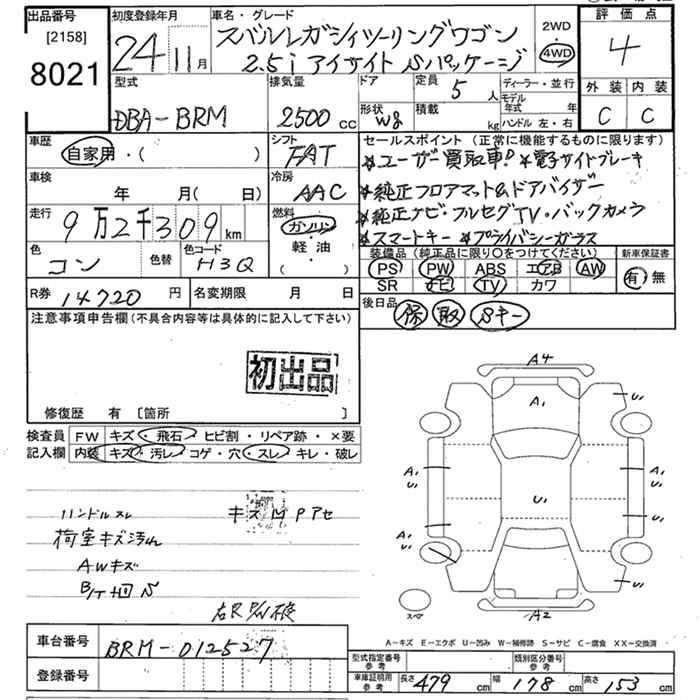 出品番号 初度登録年月 車名・グレード 評価点
[2158]
8021
24年11月
スバルレガシィツーリングワゴン
2.5i アイサイト Sパッケージ
2WD
4WD
4
外装 内装
C C
型式 排気量 ドア 定員 ディーラー・並行
DBA-BRM 2500cc 5人
モデル年式 年
形状 W8 積載 kg ハンドル 左・右
車歴 シフト
自家用・( ) FAT
セールスポイント (正常に機能するものに限ります)
★ユーザー買取車! ★電子サイドブレーキ
★純正フロアマット&ドアバイザー
★純正ナビ・フルセグTV・バックカメラ
★スマートキー ★プライバシーガラス
車検 冷房
年 月( 日) AAC
走行 燃料
9万2千309km ガソリン
軽・油
( )
色 色替 色コード
コン H3Q
装備品 (純正品に限り○をつけてください) 新車保証書
PS PW ABS エアB AW
SR ナビ TV カワ
有・無
R券 14720円 名変期限 月 日
後日品 保 取 Sキー
注意事項申告欄(不具合内容等は具体的に記入して下さい)
初出品
修復歴 有 [箇所 ]
検査員 FW キズ・飛石・ヒビ割・リペア跡・×要
記入欄 内装 キズ・汚レ・コゲ・穴・スレ・キレ・破レ
ハンドルスレ キズ Pアセ
荷室キズ汚れ
AWキズ
A4
A1
U1
U1
A1
U1
A1
U1
A1
U1
U1
U1
A2
スペア
A-キズ E-エクボ U-凹み W-補修跡 S-サビ C-腐食 XX-交換済
車台番号 BRM-012527
登録番号
型式指定番号 参考 類別区分番号 参考
車庫証明用 参考 長さ 479cm 幅 178cm 高さ 153cm